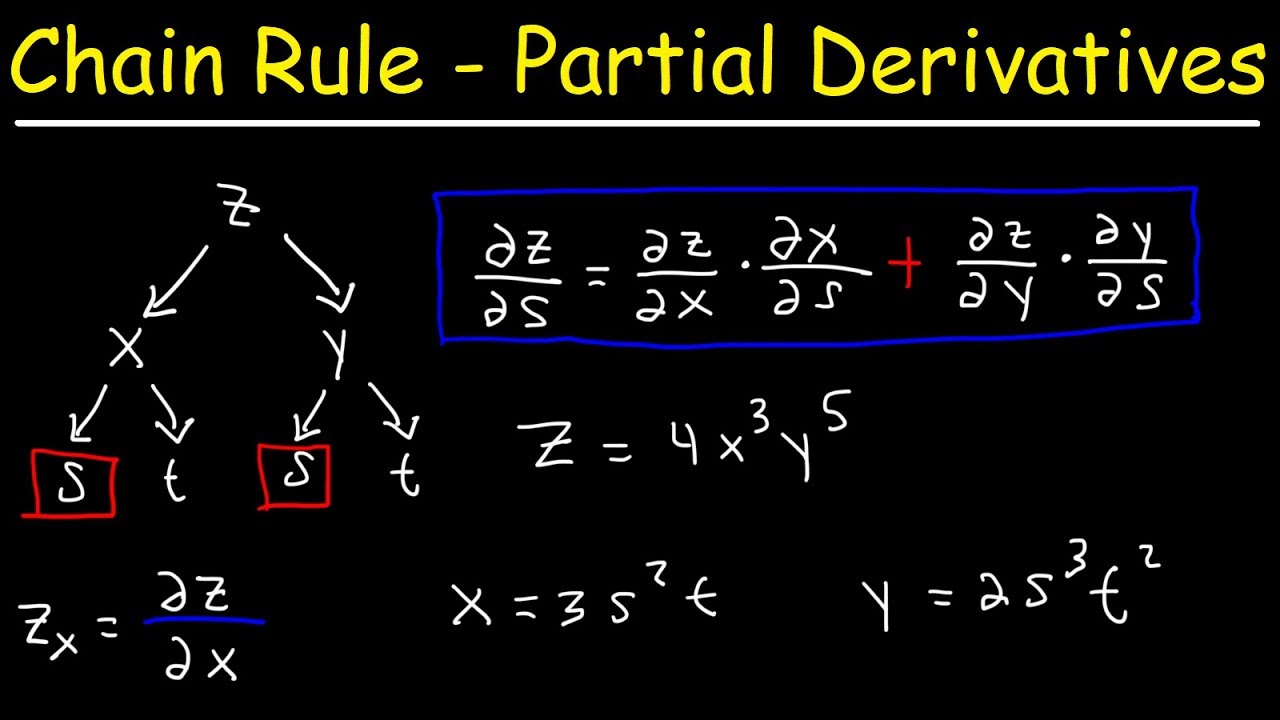 Chain Rule - Partial Derivatives
z
∂z/∂s = ∂z/∂x · ∂x/∂s + ∂z/∂y · ∂y/∂s
x y
s t s t
z = 4x³y⁵
zₓ = ∂z/∂x
x = 3s²t
y = 2s³t²